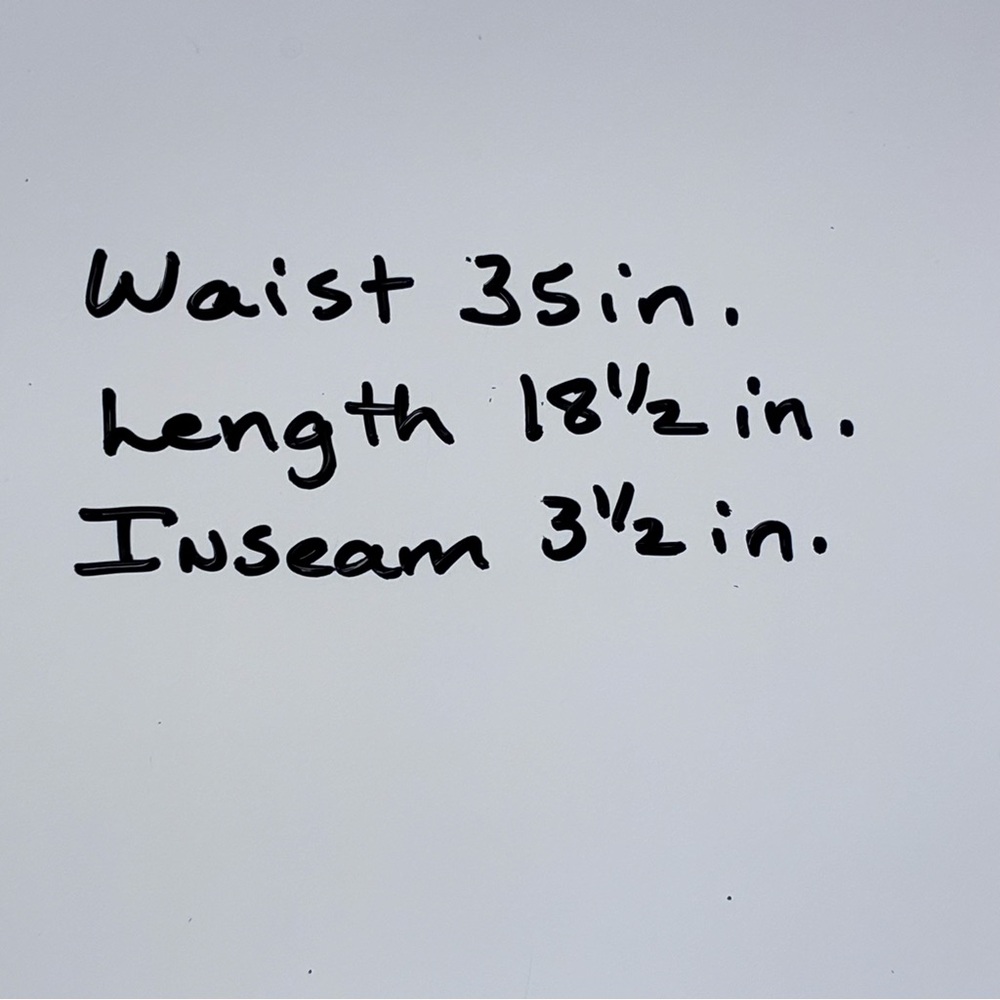 Waist 35in.
Length 18 1/2 in.
Inseam 3 1/2 in.